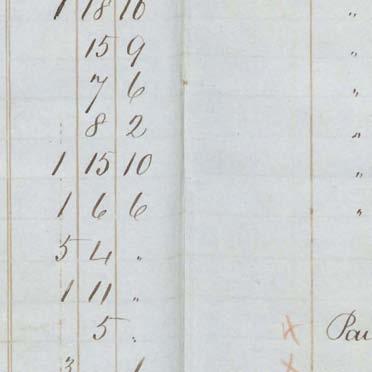 1 18 10 "
15 9 "
7 6 "
8 2 "
1 15 10 "
1 6 6 "
5 4 "
1 11 "
5 " x Pai
3 1 x